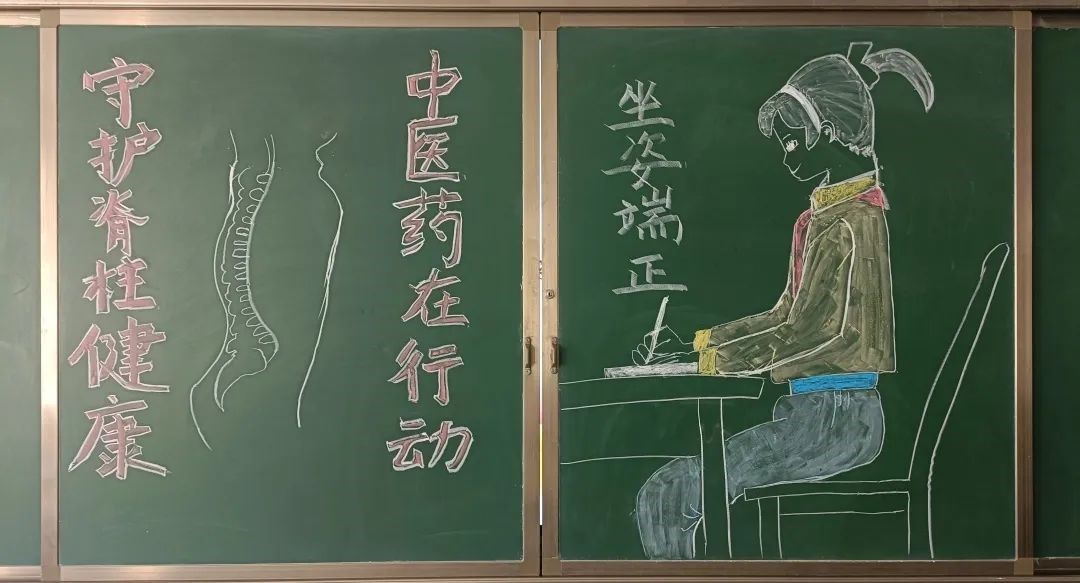 守护脊柱健康
中医药在行动
坐姿端正